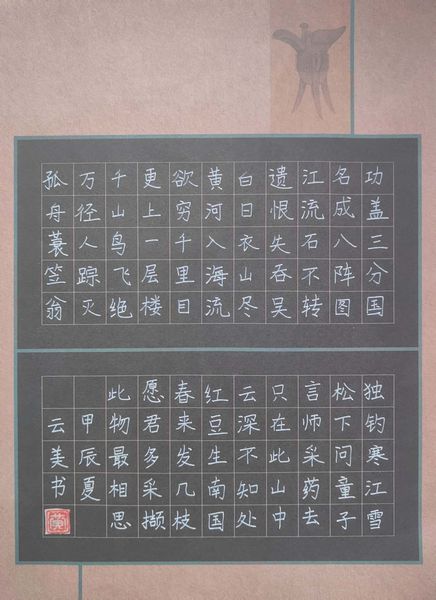 功盖三分国
名成八阵图
江流石不转
遗恨失吞吴
白日衣山尽
黄河入海流
欲穷千里目
更上一层楼
千山鸟飞绝
万径人踪灭
孤舟蓑笠翁
独钓寒江雪
松下问童子
言师采药去
只在此山中
云深不知处
红豆生南国
春来发几枝
愿君多采撷
此物最相思
甲辰夏
云美书